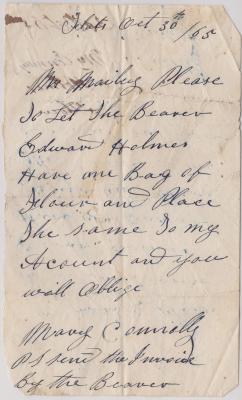 Oct 30th /65
Mr Mailey Please
To Let The Bearer
Edward Holmes
Have one Bag of
Flour and Place
The same To my
Acount and you
will Oblige
Mary Connolly
PS send the Invoice
By the Bearer